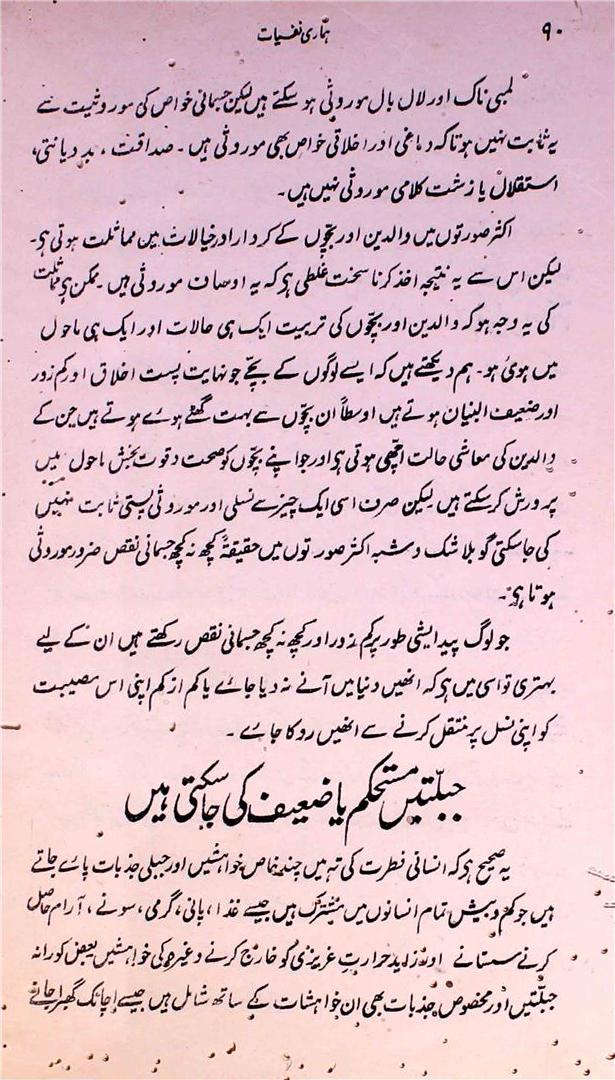 ۹۰
ہماری نفسیات
لمبی ناک اور لال بال موروثی ہو سکتے ہیں لیکن جسمانی خواص کی موروثیت سے
یہ ثابت نہیں ہوتا کہ دماغی اور اخلاقی خواص بھی موروثی ہیں ۔ صداقت ، بد دیانتی،
استقلال یا زشت کلامی موروثی نہیں ہیں ۔
اکثر صورتوں میں والدین اور بچّوں کے کردار اور خیالات میں مماثلت ہوتی ہی۔
لیکن اس سے یہ نتیجہ اخذ کرنا سخت غلطی ہی کہ یہ اوصاف موروثی ہیں ۔ ممکن ہی مماثلت
کی یہ وجہ ہو کہ والدین اور بچّوں کی تربیت ایک ہی حالات اور ایک ہی ماحول
میں ہوئ ہو ۔ ہم دیکھتے ہیں کہ ایسے لوگوں کے بچّے جو نہایت پست اخلاق اور کم زور
اور ضعیف البنیان ہوتے ہیں اوسطاً ان بچّوں سے بہت گھٹے ہوے ہوتے ہیں جن کے
والدین کی معاشی حالت اچھی ہوتی ہی اور جو اپنے بچّوں کو صحت و قوت بخش ماحول میں
پرورش کر سکتے ہیں لیکن صرف اسی ایک چیز سے نسلی اور موروثی پستی ثابت نہیں
کی جا سکتی گو بلا شک و شبہ اکثر صورتوں میں حقیقۃً کچھ نہ کچھ جسمانی نقص ضرور موروثی
ہوتا ہی ۔
جو لوگ پیدایشی طور پر کم زور اور کچھ نہ کچھ جسمانی نقص رکھتے ہیں ان کے لیے
بہتری تو اسی میں ہی کہ انھیں دنیا میں آنے نہ دیا جاے یا کم از کم اپنی اس مصیبت
کو اپنی نسل پر منتقل کرنے سے انھیں روکا جاے ۔
جبلّتیں مستحکم یا ضعیف کی جا سکتی ہیں
یہ صحیح ہی کہ انسانی فطرت کی تہ میں چند خاص خواہشیں اور جبلی جذبات پاے جاتے
ہیں جو کم و بیش تمام انسانوں میں مشترک ہیں جیسے غذا ، پانی ، گرمی ، سونے ، آرام حاصل
کرنے سستانے اور زاید حرارتِ غریزی کو خارج کرنے وغیرہ کی خواہشیں بعض کورانہ
جبلّتیں اور مخصوص جذبات بھی ان خواہشات کے ساتھ شامل ہیں جیسے اچانک گھبرا جانے